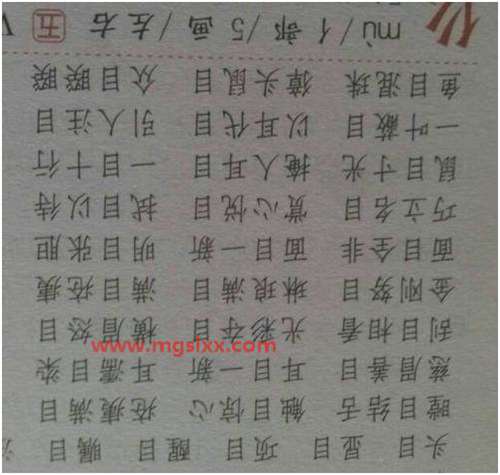 头目 显目 项目 醒目 瞩目
瞠目结舌 触目惊心 疮痍满目
慈眉善目 耳目一新 耳濡目染
刮目相看 光彩夺目 横眉怒目
金刚努目 琳琅满目 满目疮痍
面目全非 面目一新 明目张胆
巧立名目 赏心悦目 拭目以待
鼠目寸光 掩人耳目 一目十行
一叶蔽目 以耳代目 引人注目
鱼目混珠 獐头鼠目 众目睽睽
仫 mù/亻部/5画/左右 五
www.mgsixx.com